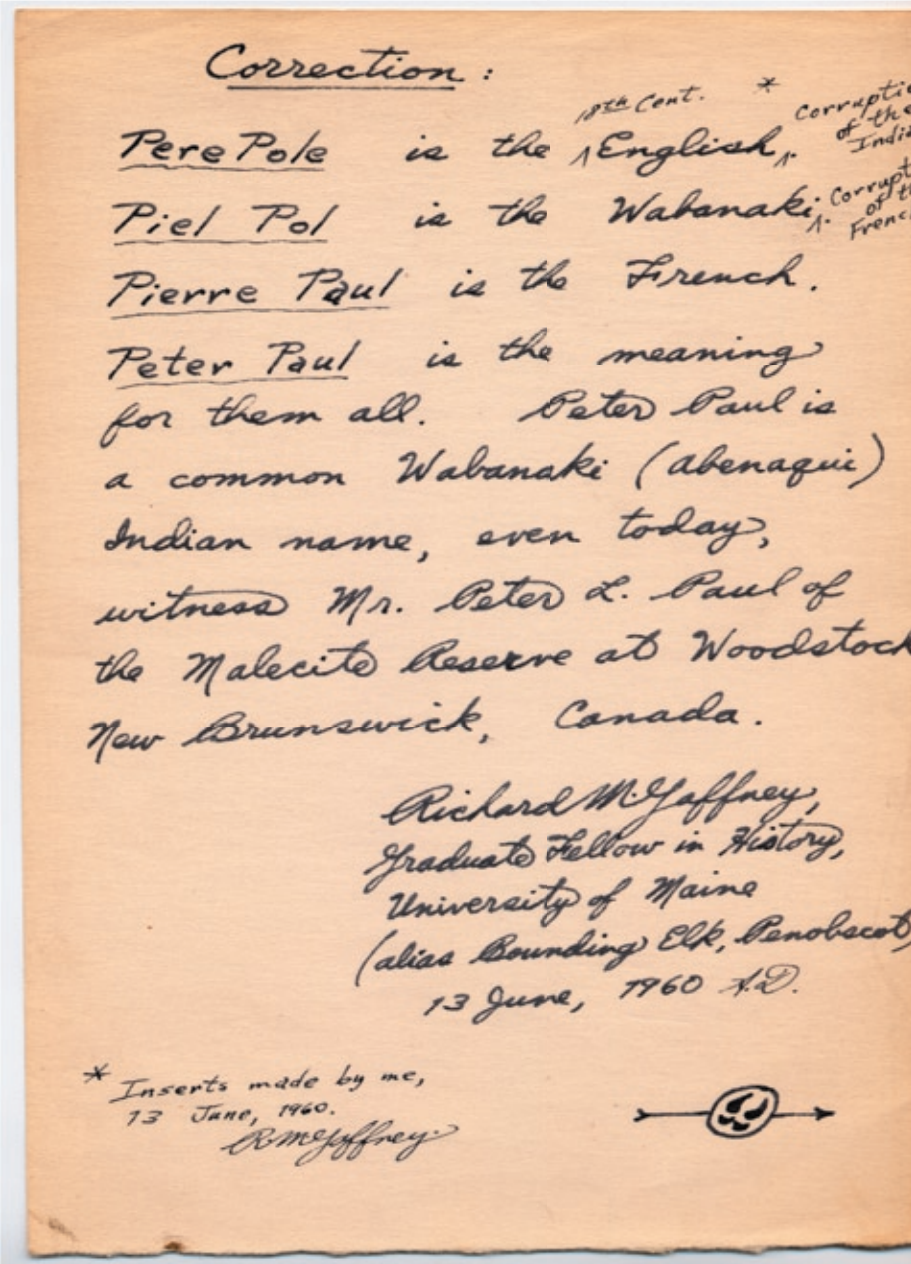 Correction:
18th Cent. *
Pere Pole is the ^English^.
of the
Piel Pol is the Wabanaki^.
Pierre Paul is the French.
Peter Paul is the meaning
for them all. Peter Paul is
a common Wabanaki (Abenaqui)
Indian name, even today,
witness Mr. Peter L. Paul of
the Malecite Reserve at Woodstock
New Brunswick, Canada.
Richard McGaffney,
Graduate Fellow in History,
University of Maine
(alias Bounding Elk, Penobscot)
13 June, 1960 A.D.
* Inserts made by me,
13 June, 1960.
R McGaffney.